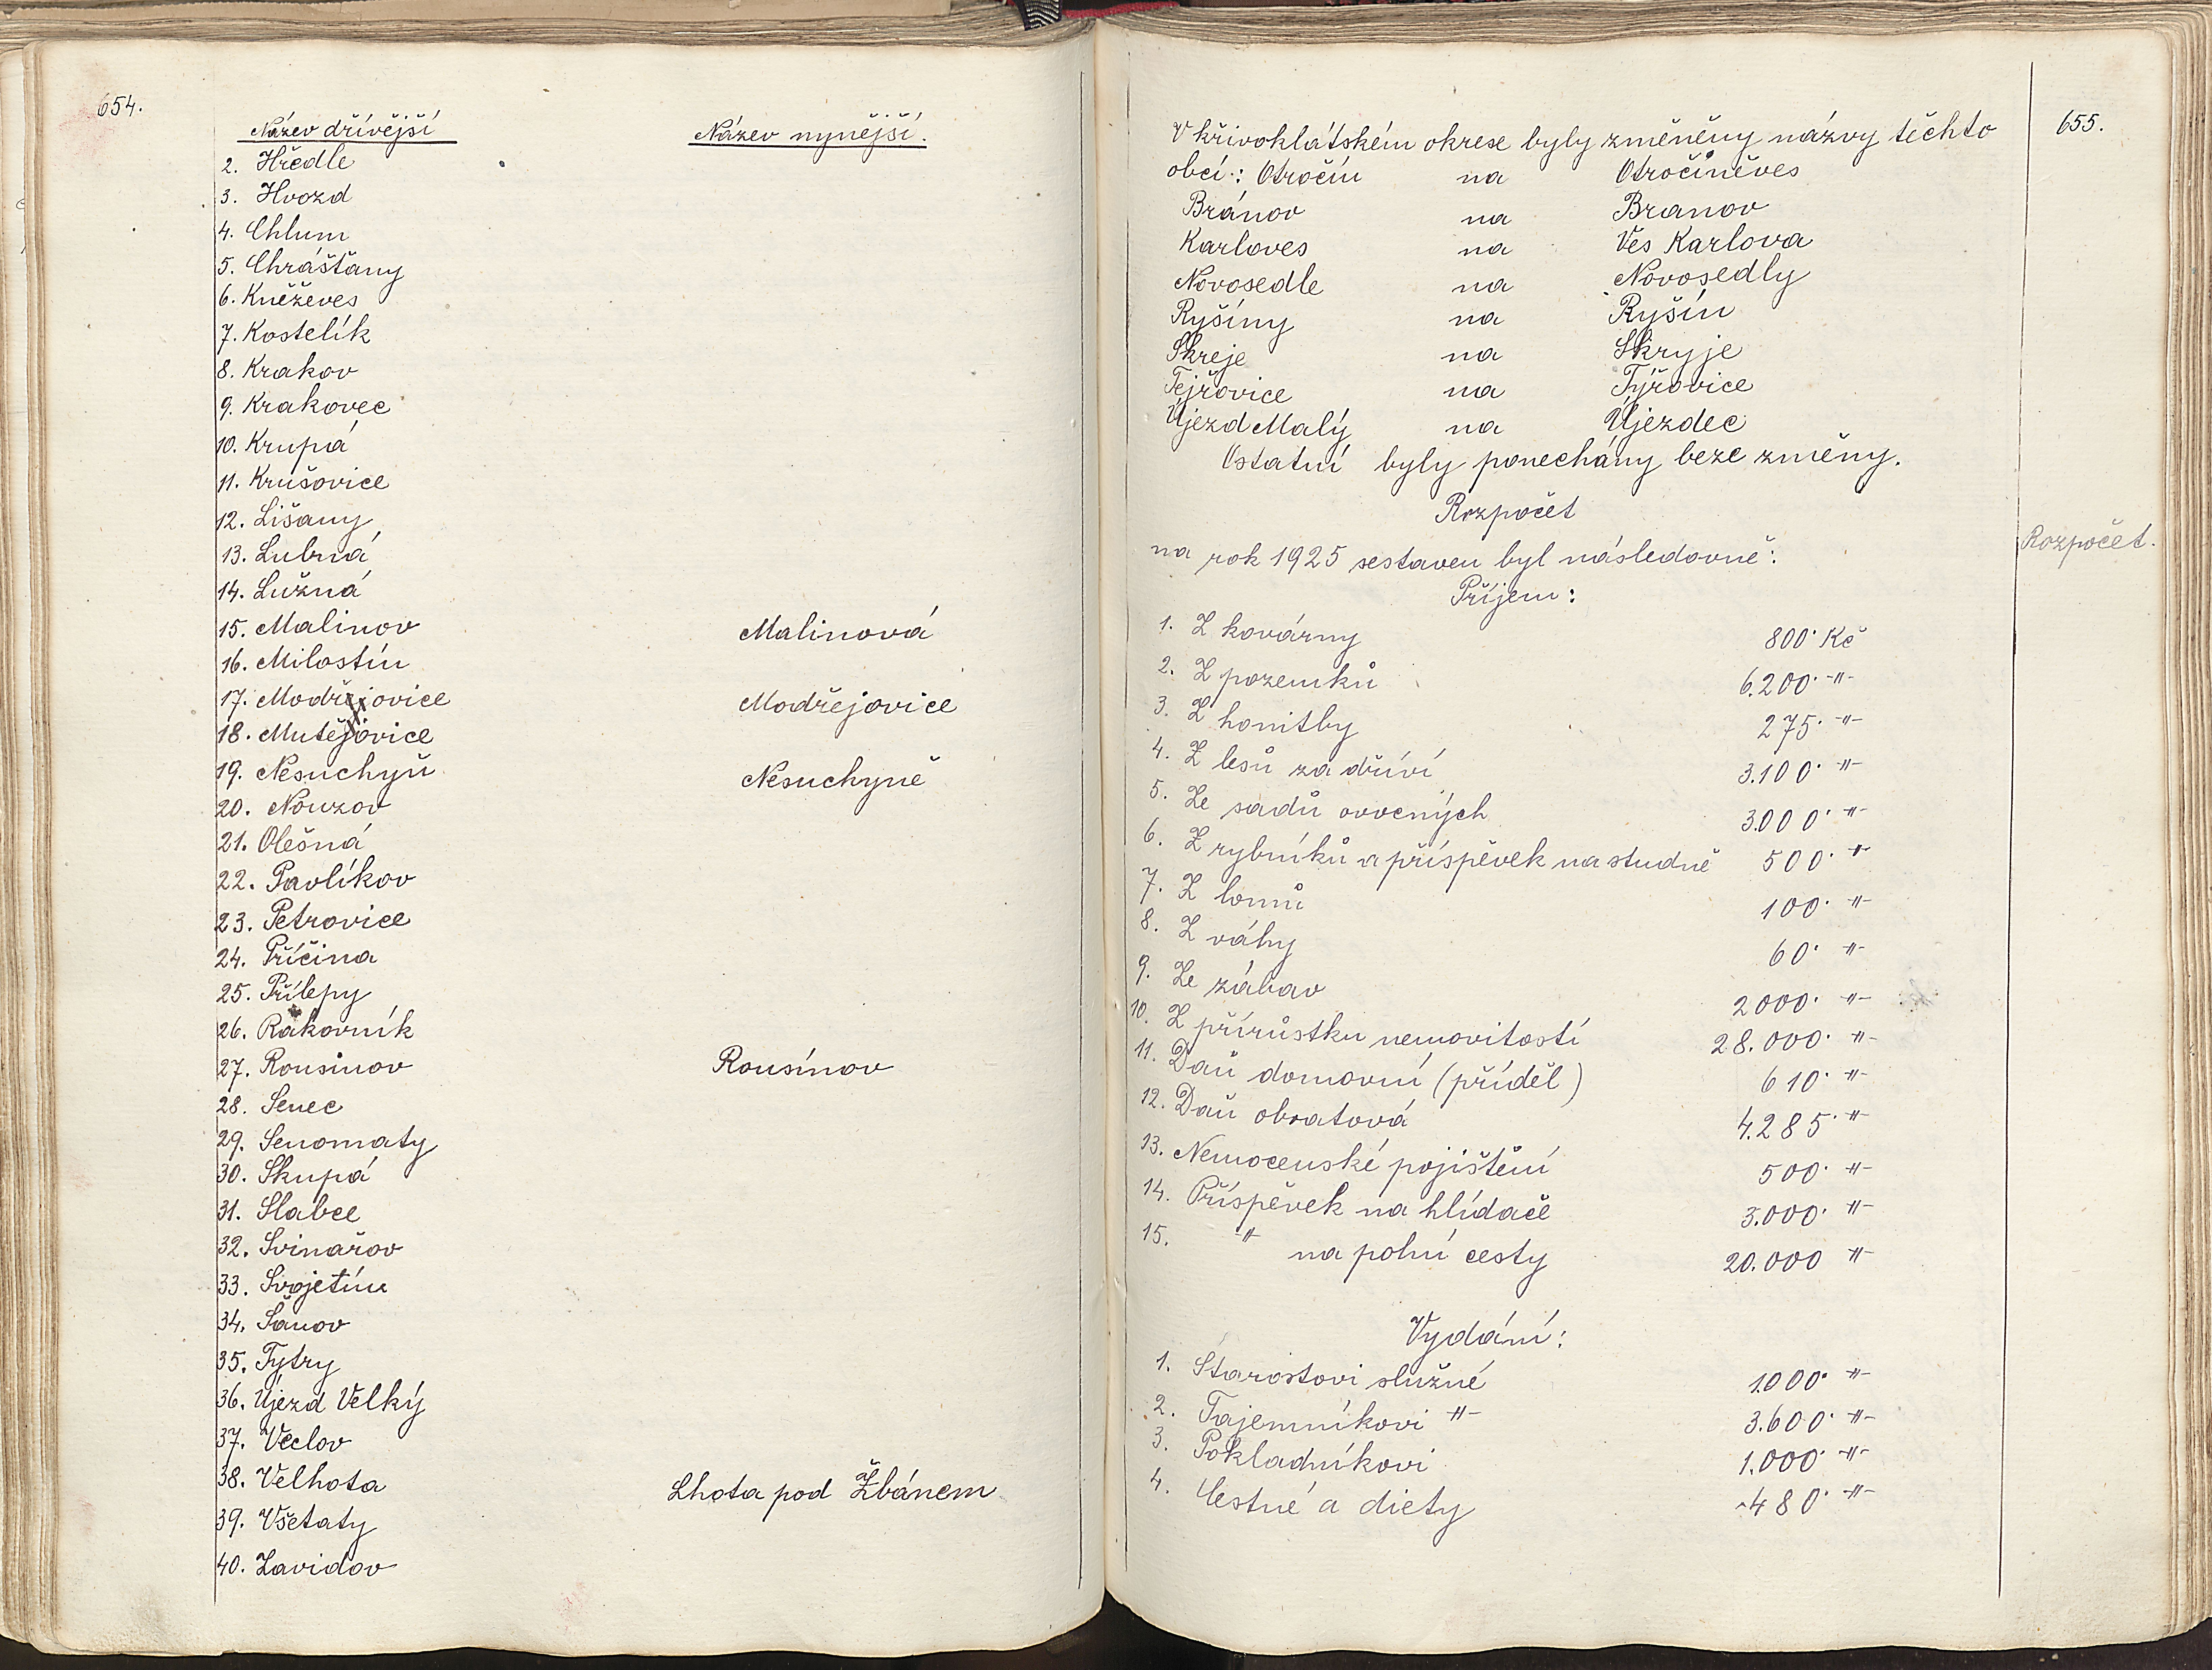 654.
Název dřívější Název nynější.
2. Hředle
3. Hvozd
4. Chlum
5. Chrášťany
6. Kněževes
7. Kostelík
8. Krakov
9. Krakovec
10. Krupá
11. Krušovice
12. Lišany
13. Lubná
14. Lužná
15. Malinov Malinová
16. Milostín
17. Modřejovice Modřejovice
18. Mutějovice
19. Nesuchyň Nesuchyně
20. Nouzov
21. Olešná
22. Pavlíkov
23. Petrovice
24. Příčina
25. Přílepy
26. Rakovník
27. Rousinov Rousínov
28. Senec
29. Senomaty
30. Skupá
31. Slabce
32. Svinařov
33. Svojetín
34. Šanov
35. Tytry
36. Újezd Velký
37. Václov
38. Velhota Lhota pod Žbánem
39. Všetaty
40. Zavidov
655.
V křivoklátském okrese byly změněny názvy těchto
obcí: Otročín na Otročiněves
Bránov na Branov
Karloves na Ves Karlova
Novosedle na Novosedly
Ryšíny na Ryšín
Skreje na Skryje
Tejřovice na Týřovice
Újezd Malý na Újezdec
Ostatní byly ponechány beze změny.
Rozpočet
Rozpočet.
na rok 1925 sestaven byl následovně:
Příjem:
1. Z kovárny 800· Kč
2. Z pozemků 6.200· -"-
3. Z honitby 275· -"-
4. Z lesů za dříví 3.100· -"-
5. Ze sadů ovocných 3.000· -"-
6. Z rybníků a příspěvek na studně 500· "
7. Z lomů 100· -"-
8. Z váhy 60· -"-
9. Ze zábav 2000· -"-
10. Z přírůstku nemovitostí 28.000· -"-
11. Daň domovní (příděl) 610· -"-
12. Daň obratová 4.285· -"-
13. Nemocenské pojištění 500· -"-
14. Příspěvek na hlídače 3.000· -"-
15. -"- na polní cesty 20.000 -"-
Vydání:
1. Starostovi služné 1.000· -"-
2. Tajemníkovi -"- 3.600· -"-
3. Pokladníkovi 1.000· -"-
4. Cestné a diety 480· -"-